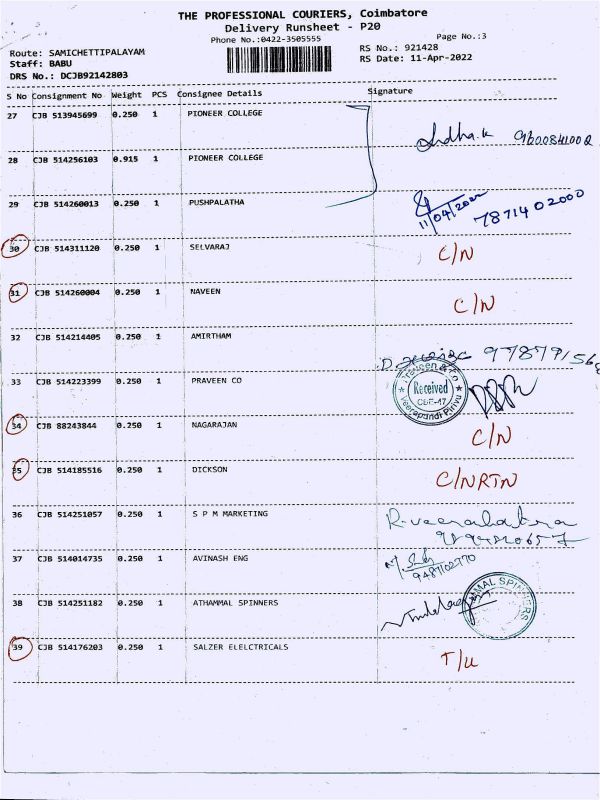 THE PROFESSIONAL COURIERS, Coimbatore
Delivery Runsheet - P20
Phone No:0422-3505555
Page No.:3
Route: SAMICHETTIPALAYAM
RS No.: 921428
Staff: BABU
RS Date: 11-Apr-2022
DRS No.: DCJB92142803
S No Consignment No Weight PCS Consignee Details Signature
27 CJB 513945699 0.250 1 PIONEER COLLEGE
28 CJB 514256103 0.915 1 PIONEER COLLEGE
29 CJB 514260013 0.250 1 PUSHPALATHA 11/04/2022 7871402000
30 CJB 514311120 0.250 1 SELVARAJ C/N
31 CJB 514260004 0.250 1 NAVEEN C/N
32 CJB 514214405 0.250 1 AMIRTHAM
33 CJB 514223399 0.250 1 PRAVEEN CO Praveen & Co Received CBE-47 Veerapandi Pirivu
34 CJB 88243844 0.250 1 NAGARAJAN C/N
35 CJB 514185516 0.250 1 DICKSON C/N RTN
36 CJB 514251057 0.250 1 S P M MARKETING
37 CJB 514014735 0.250 1 AVINASH ENG 9487102770
38 CJB 514251182 0.250 1 ATHAMMAL SPINNERS MMAL SPINNERS
39 CJB 514176203 0.250 1 SALZER ELELCTRICALS T/U